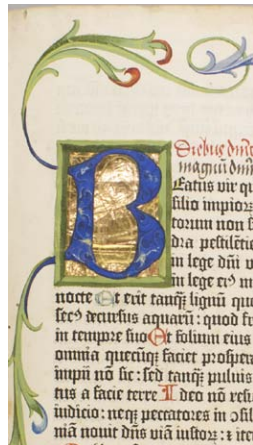 Diebus dn̄ic
magnū dn̄m
B
Eatus vir qu
silio impioꝝ
torum non s
dra pestilētie
in lege dn̄i v
in lege eiꝰ m
nocte Et erit tanq̄ lignū que
secꝰ decursus aquarū: quod fr
in tempore suo Et folium eius
omnia quecūqꝫ faciet prospera
impii nō sic: sed tanq̄ puluis
tus a facie terre I deo nō resu
iudicio: neqꝫ peccatores in ꝯsil
niā nouit dn̄s viā iustoꝝ: ⁊ iter